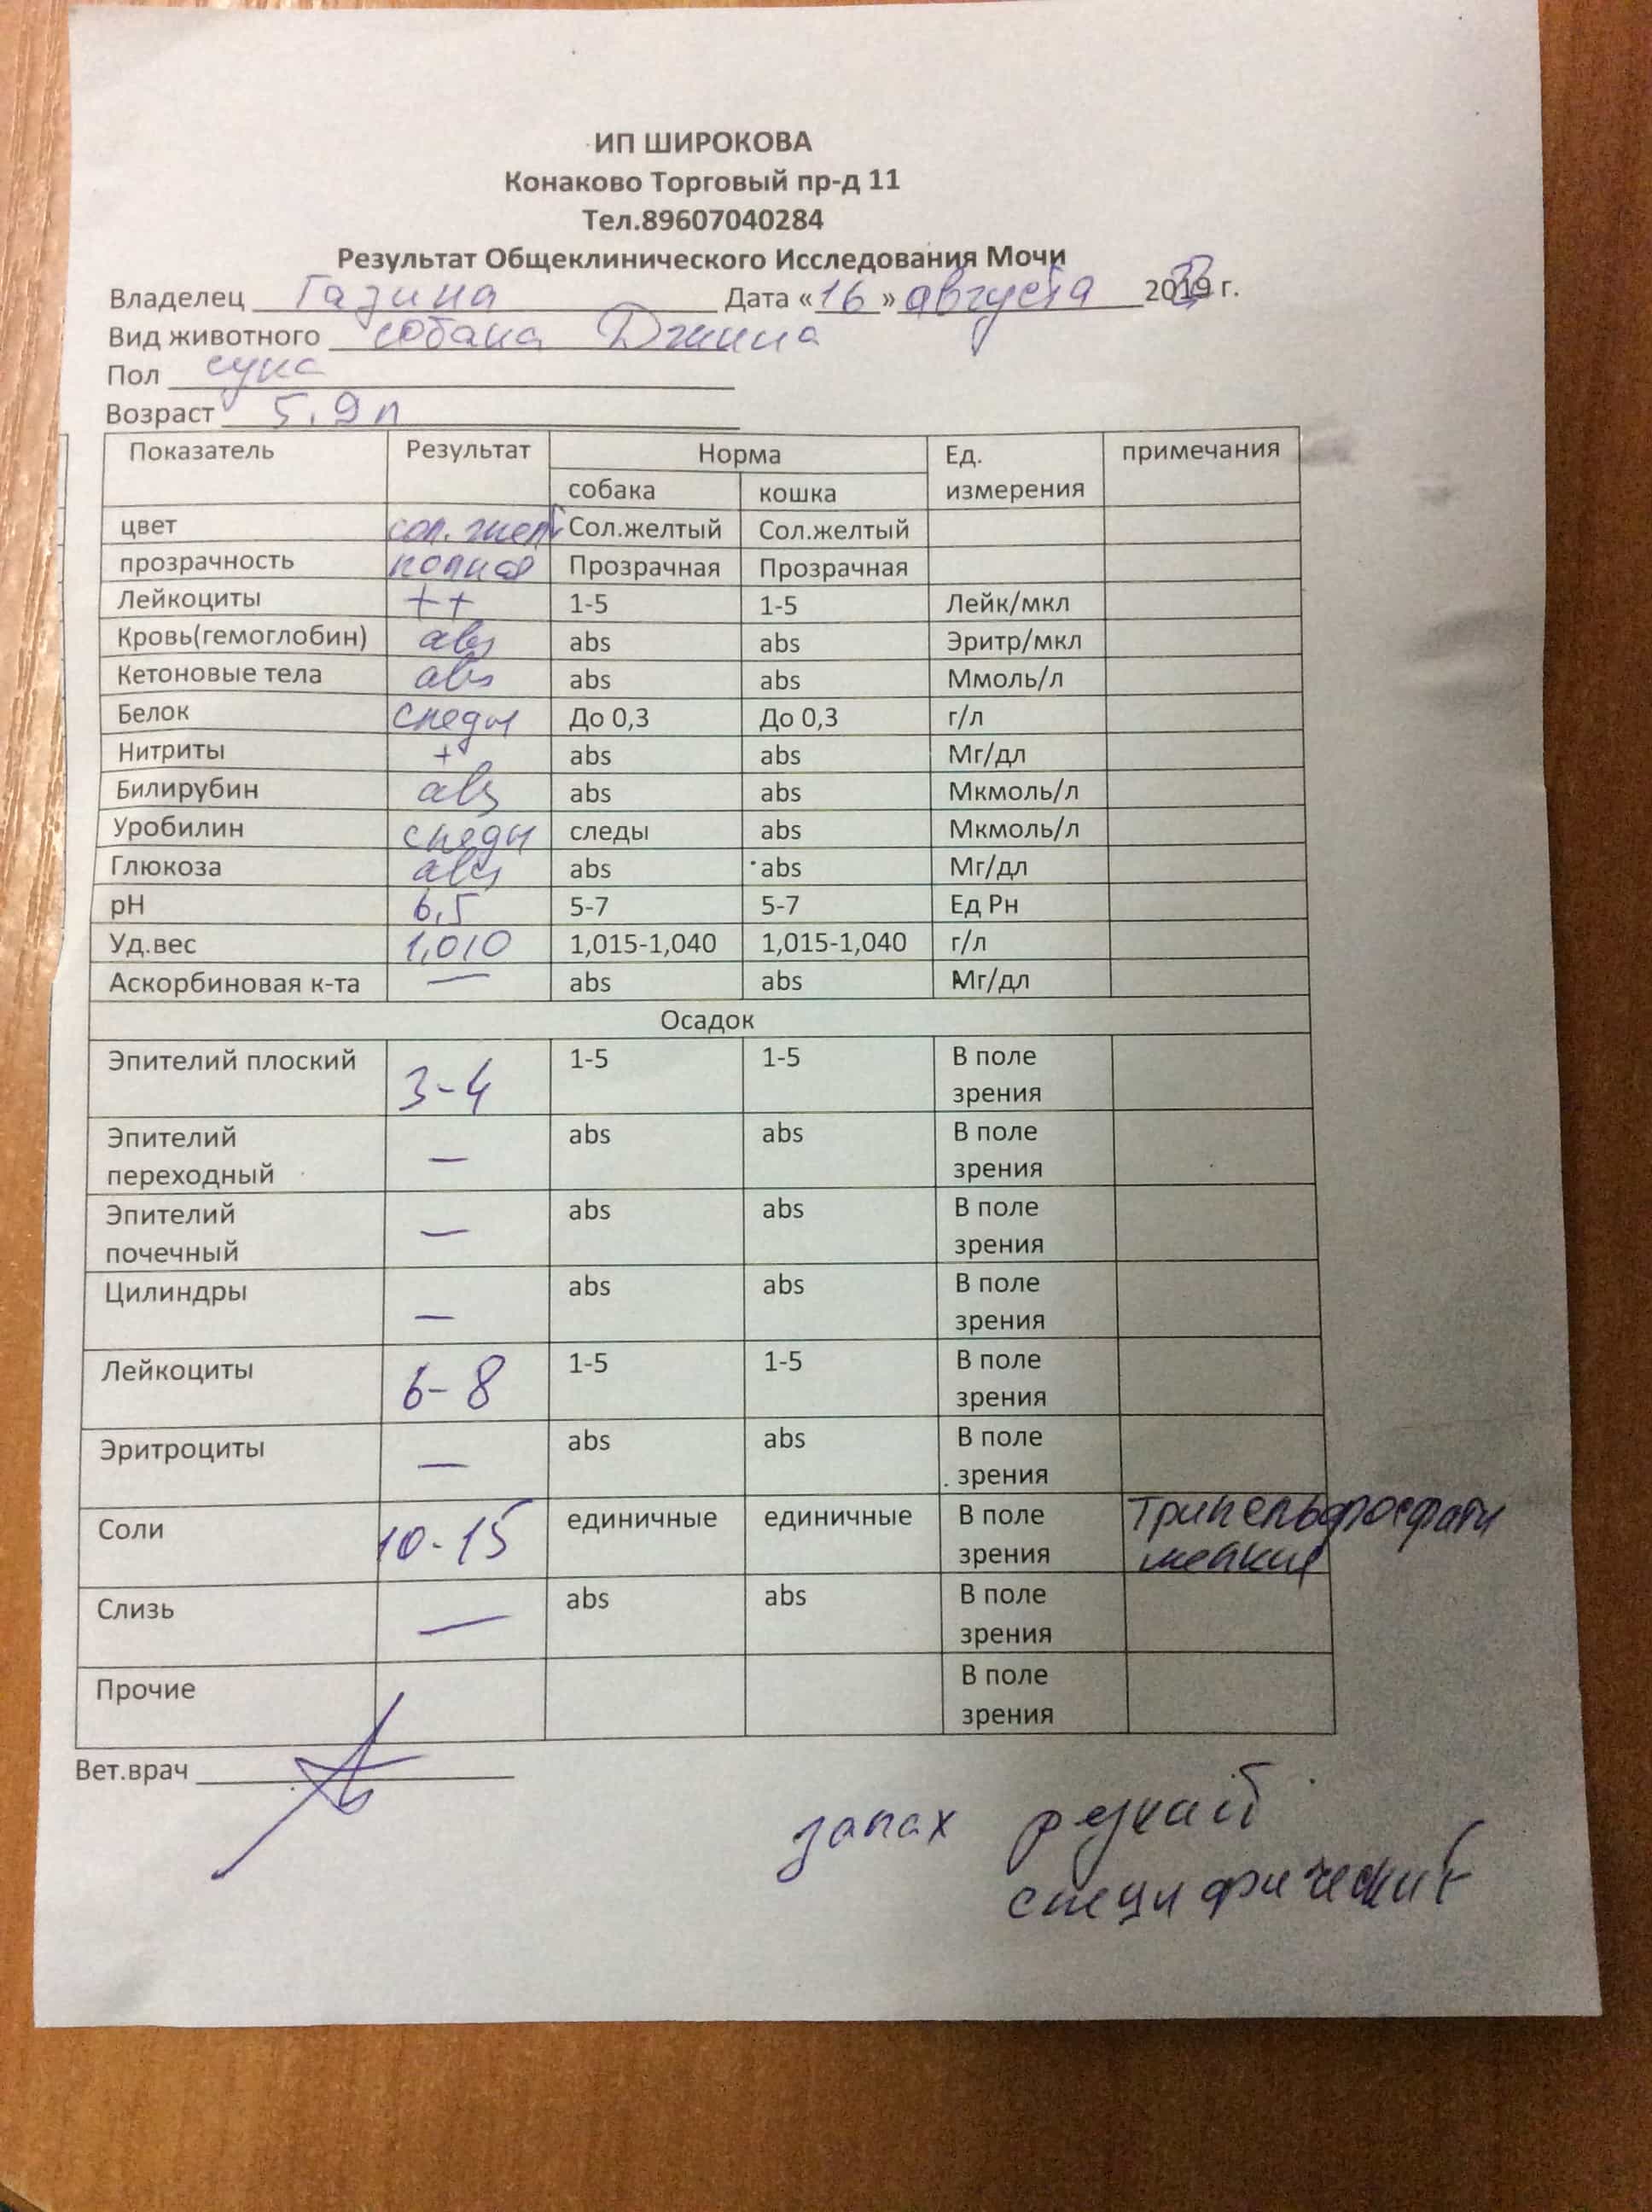 ИП ШИРОКОВА
Конаково Торговый пр-д 11
Тел.89607040284
Результат Общеклинического Исследования Мочи
Владелец Дата «16» августа 2019 г.
Вид животного собака Джина
Пол сука
Возраст 5,9 л
Показатель Результат Норма Ед. измерения примечания
собака кошка
цвет сол. жел Сол.желтый Сол.желтый
прозрачность полная Прозрачная Прозрачная
Лейкоциты ++ 1-5 1-5 Лейк/мкл
Кровь(гемоглобин) abs abs abs Эритр/мкл
Кетоновые тела abs abs abs Ммоль/л
Белок следы До 0,3 До 0,3 г/л
Нитриты + abs abs Мг/дл
Билирубин abs abs abs Мкмоль/л
Уробилин следы следы abs Мкмоль/л
Глюкоза abs abs abs Мг/дл
pH 6,5 5-7 5-7 Ед Рн
Уд.вес 1,010 1,015-1,040 1,015-1,040 г/л
Аскорбиновая к-та — abs abs Мг/дл
Осадок
Эпителий плоский 3-4 1-5 1-5 В поле зрения
Эпителий переходный — abs abs В поле зрения
Эпителий почечный — abs abs В поле зрения
Цилиндры — abs abs В поле зрения
Лейкоциты 6-8 1-5 1-5 В поле зрения
Эритроциты — abs abs В поле зрения
Соли 10-15 единичные единичные В поле зрения трипельфосфаты мелкие
Слизь — abs abs В поле зрения
Прочие В поле зрения
Вет.врач
запах резкий
специфический